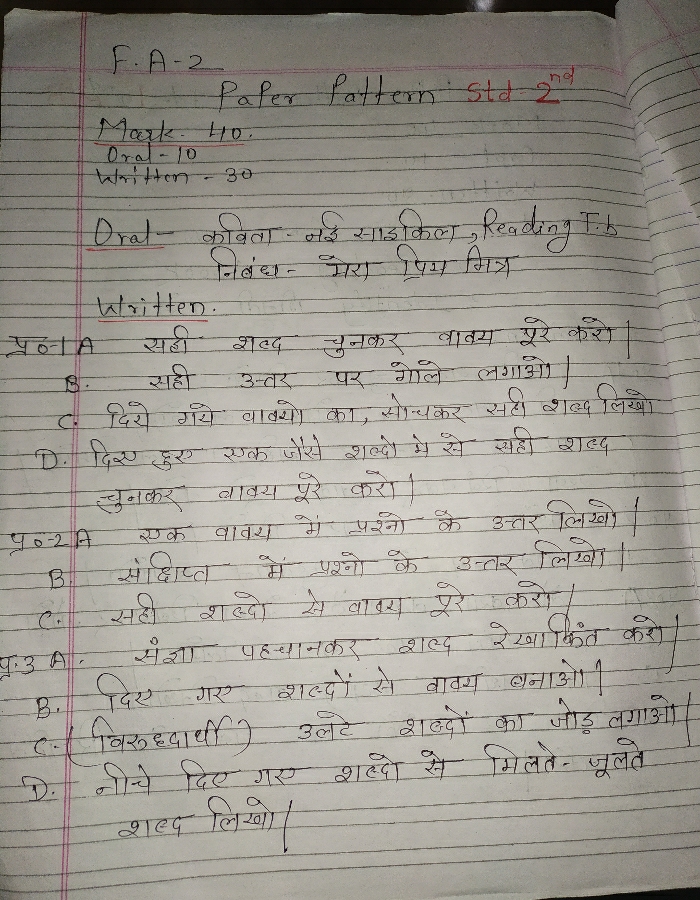 F.A-2
Paper Pattern Std-2nd
Mark- 40.
Oral-10
Written - 30
Oral- कविता - नई साइकिल, Reading T.b
निबंध- मेरा प्रिय मित्र
Written.
प्र०-1 A सही शब्द चुनकर वाक्य पूरे करो |
B. सही उत्तर पर गोले लगाओ |
C. दिये गये वाक्यो का, सोचकर सही शब्द लिखो
D. दिए हुए एक जैसे शब्दो मे से सही शब्द
चुनकर वाक्य पूरे करो |
प्र०-2 A एक वाक्य में प्रश्नो के उत्तर लिखो |
B. संक्षिप्त में प्रश्नो के उत्तर लिखो |
C. सही शब्दो से वाक्य पूरे करो |
प्र.3 A. संज्ञा पहचानकर शब्द रेखांकित करो |
B. दिए गए शब्दों से वाक्य बनाओ |
C. (विरुध्दार्थी) उलटे शब्दों का जोड़ लगाओ |
D. नीचे दिए गए शब्दो से मिलते-जूलते
शब्द लिखो |